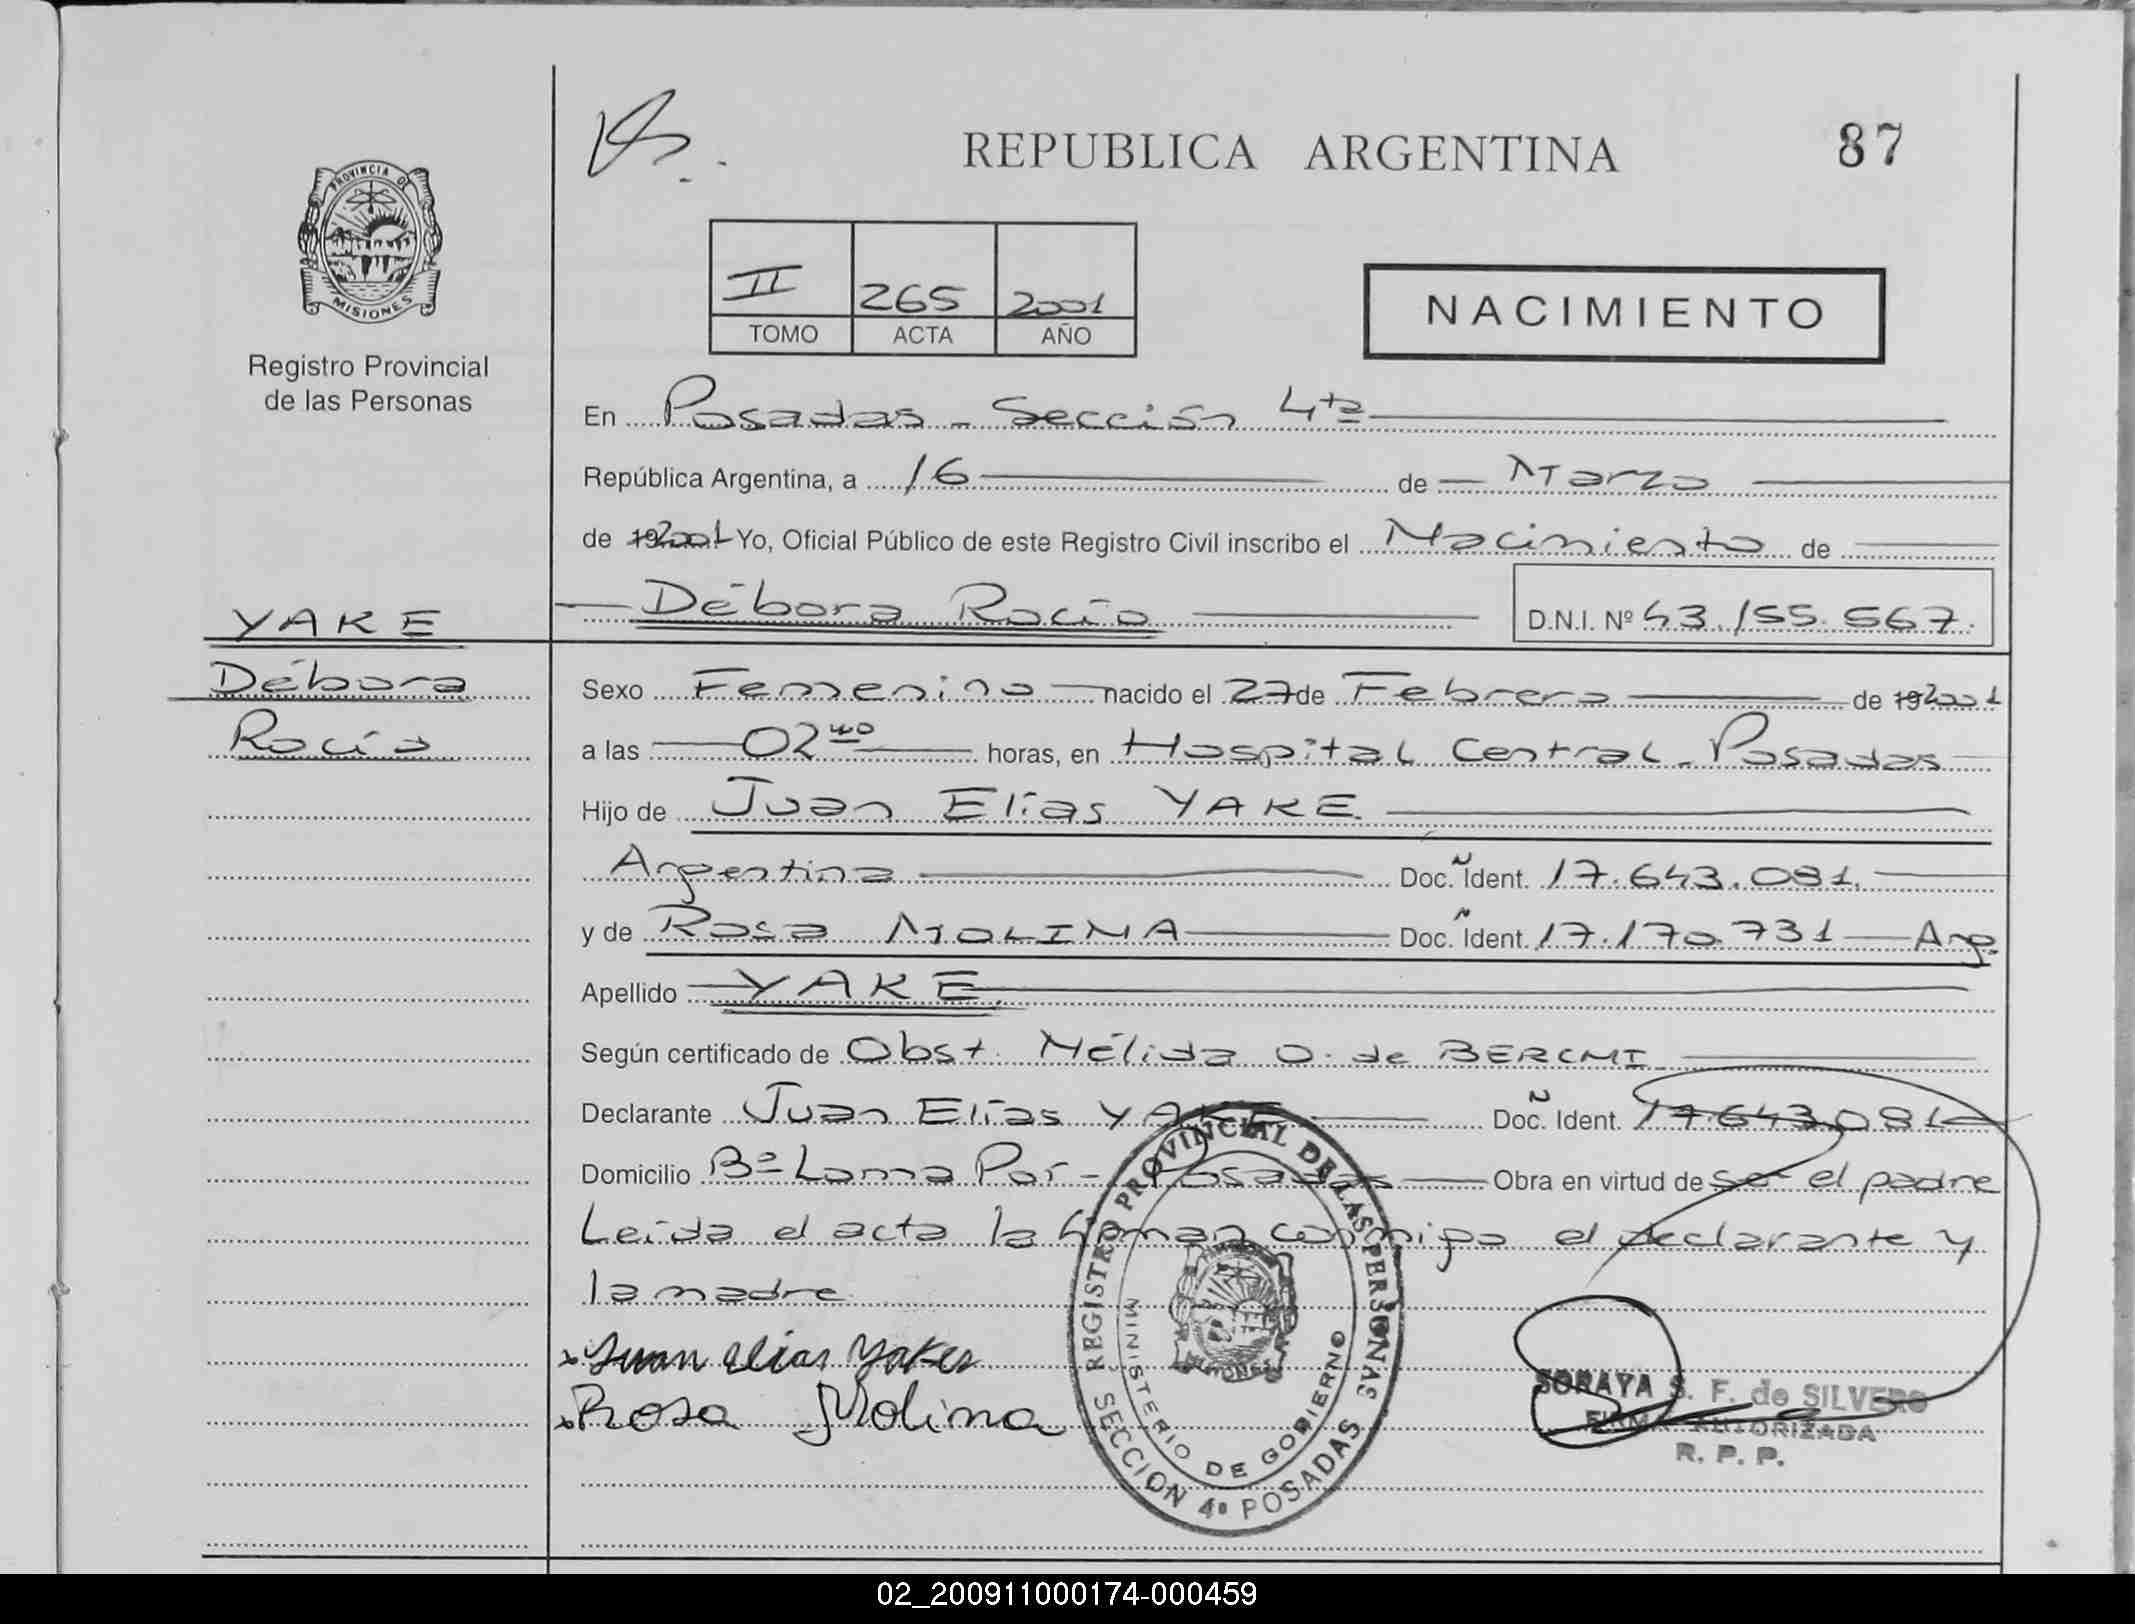 REPUBLICA ARGENTINA
87
PROVINCIA DE
MISIONES
Registro Provincial
de las Personas
II 265 2001
TOMO ACTA AÑO
NACIMIENTO
En Posadas - Sección 4ta
República Argentina, a 16 de Marzo
de 192001 Yo, Oficial Público de este Registro Civil inscribo el Nacimiento de
Débora Rocío D.N.I. Nº 43.155.567.
YAKE
Débora
Rocío
Sexo Femenino nacido el 27 de Febrero de 192001
a las 02 horas, en Hospital Central - Posadas
Hijo de Juan Elías YAKE
Argentina Doc. Ident. 17.643.081.
y de Rosa MOLINA Doc. Ident. 17.170.731 Arg.
Apellido YAKE
Según certificado de Obst. Nélida O. de
Declarante Juan Elías YAKE Doc. Ident. 17.643.081
Domicilio Bº Loma Por - Posadas Obra en virtud de ser el padre
Leída el acta la firman conmigo el declarante y
la madre
Juan elias Yakes
Rosa Molina
REGISTRO PROVINCIAL DE LAS PERSONAS
MINISTERIO DE GOBIERNO
SECCION 4ª POSADAS
SORAYA S. F. de SILVERO
FIRMA AUTORIZADA
R. P. P.
02_200911000174-000459